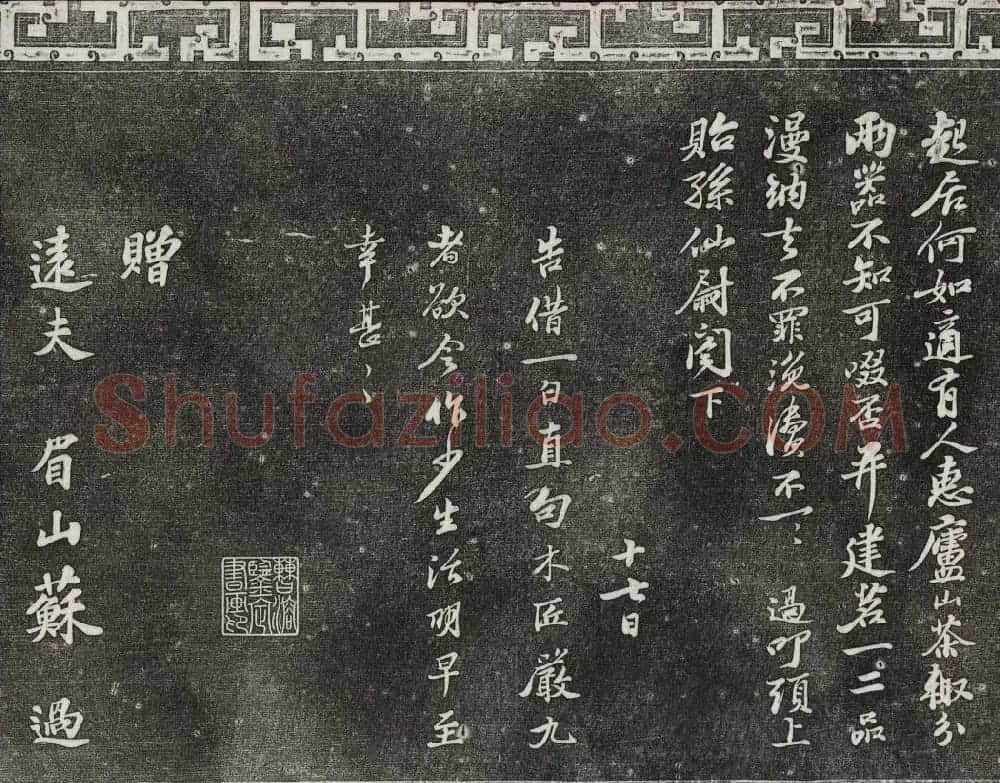 起居何如適有人惠廬山茶輙分
兩器不知可啜否并建茗一二品
漫納去不罪浼瀆不一〻過叩頭上
貽孫仙尉閤下
十七日
告借一白直勾木匠嚴九
者欲令作少生活明早至
幸甚〻
贈
遠夫 眉山蘇過
Shufaziliao.COM